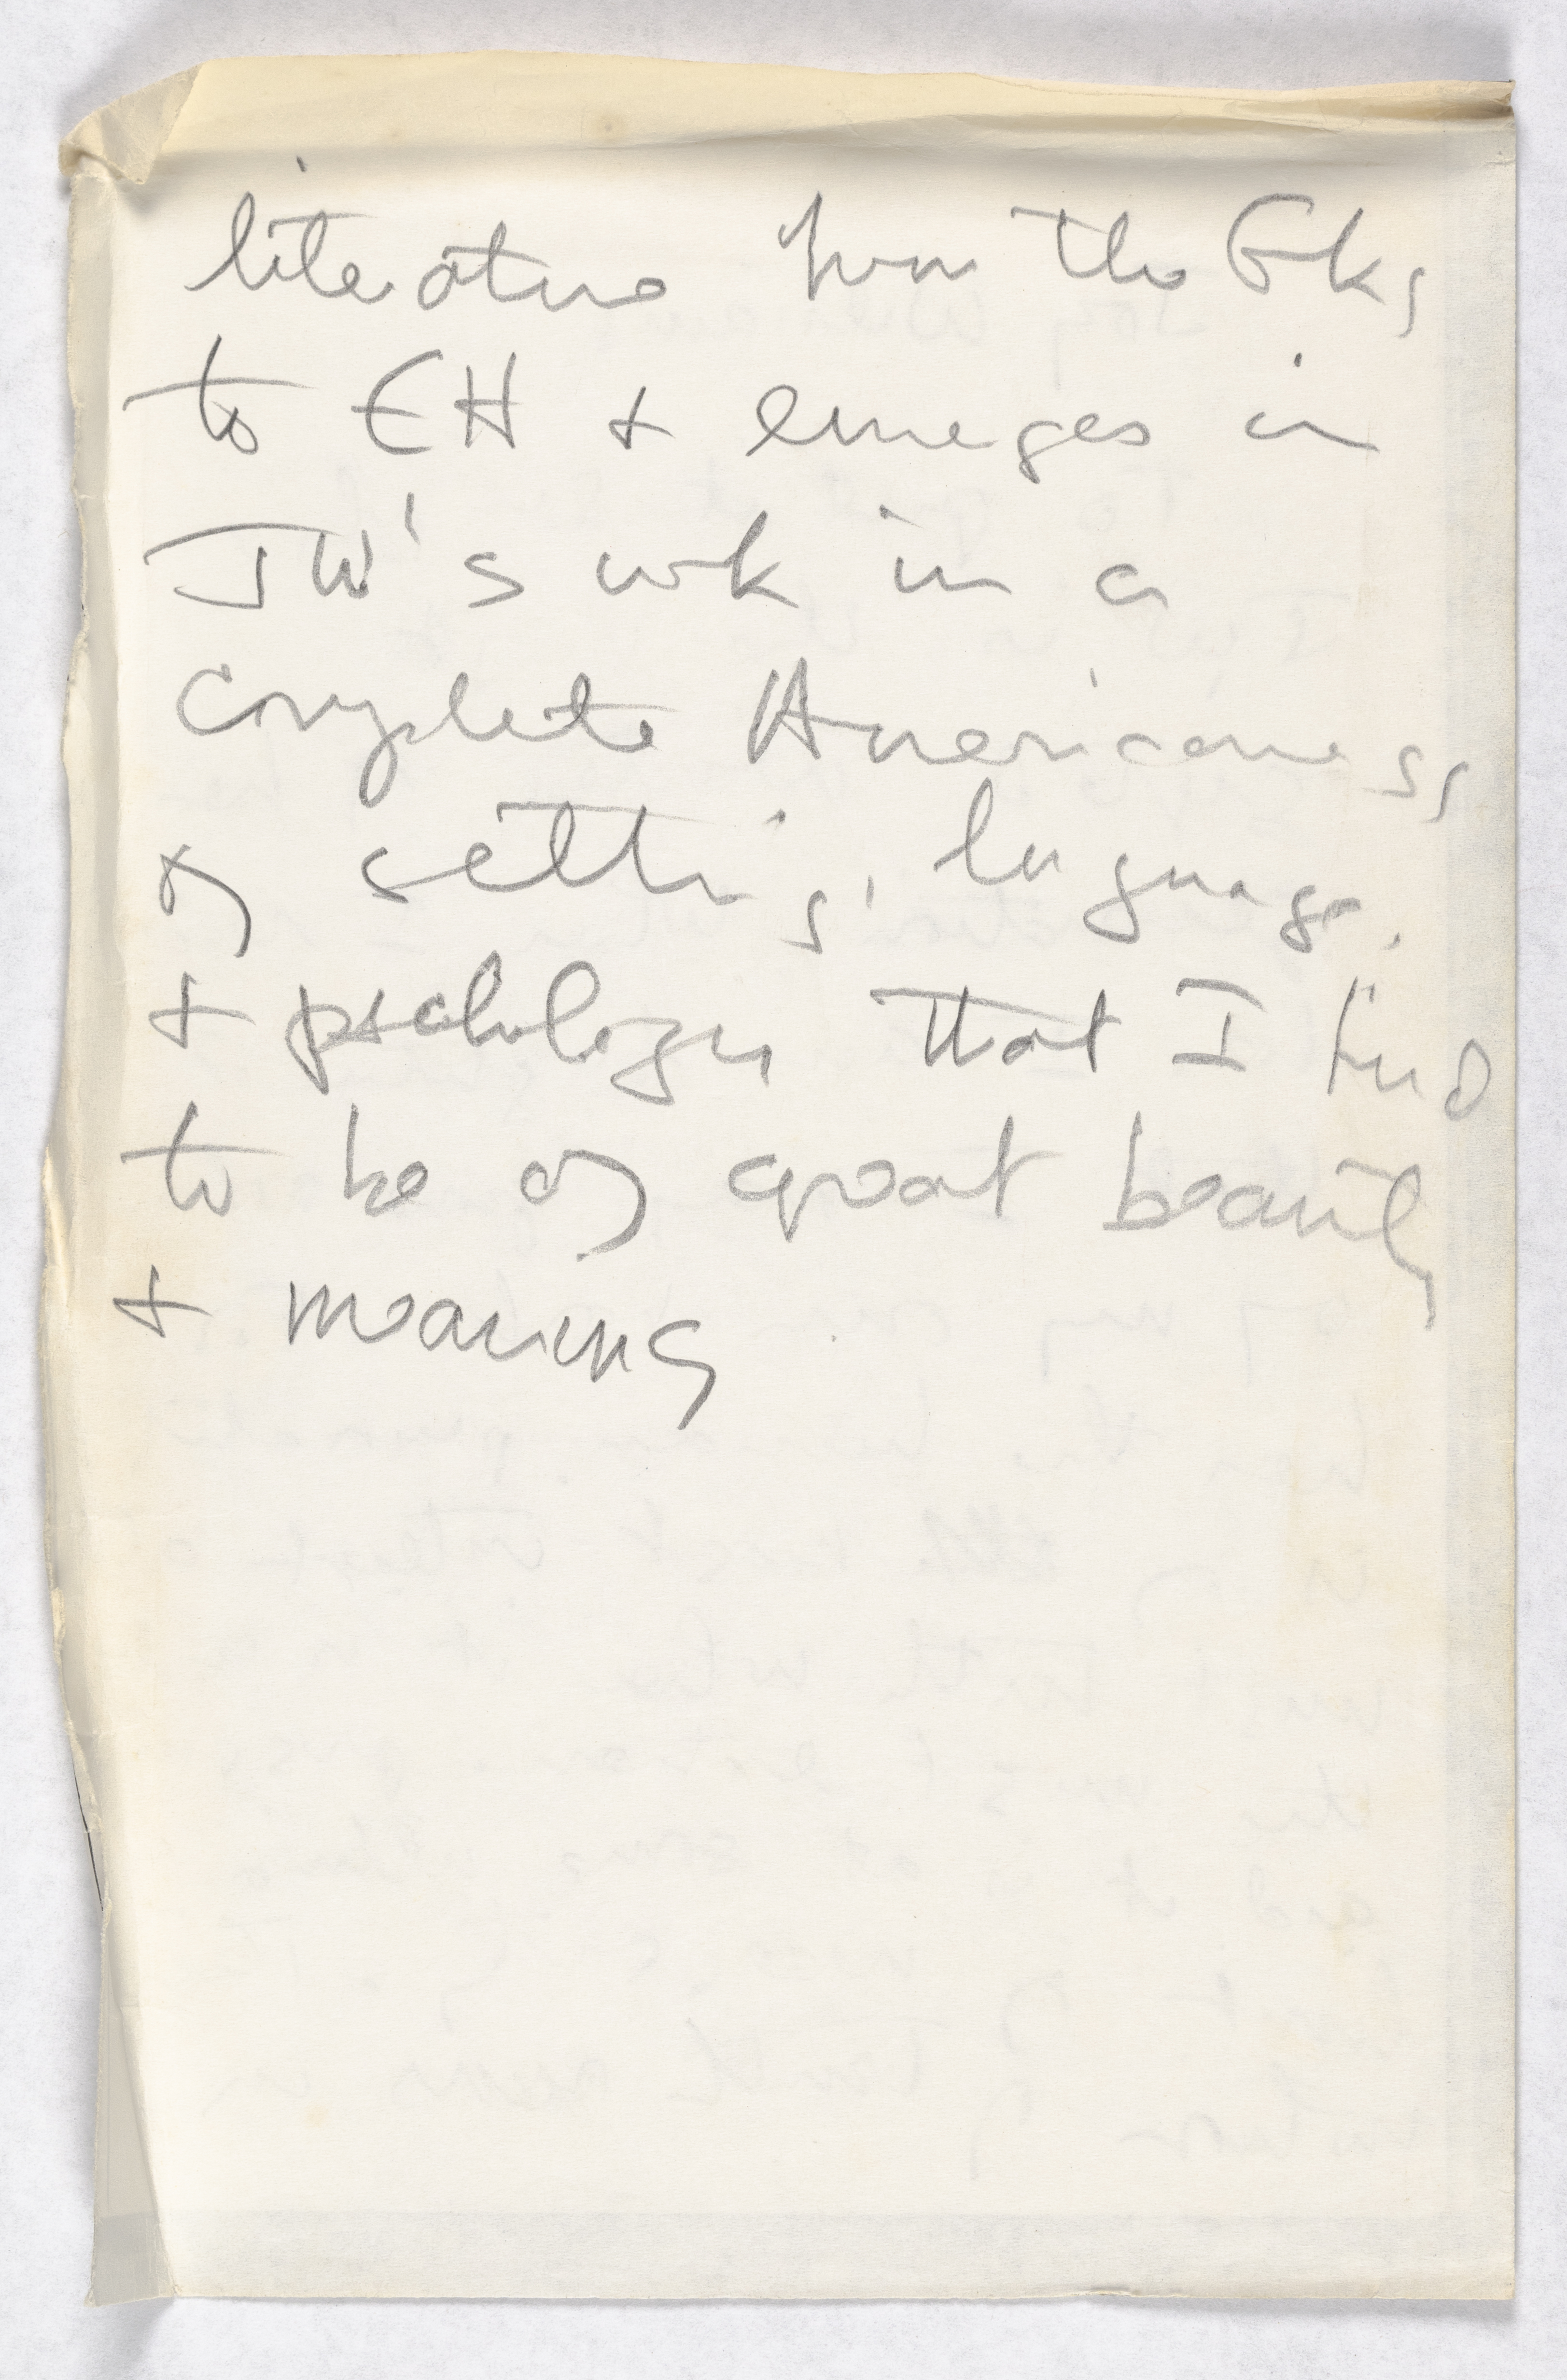 literature from the Gks
to EH + emerges in
JW's wk in a
complete Americaness
of setting, language,
+ pschology that I find
to be of great beauty
+ meaning